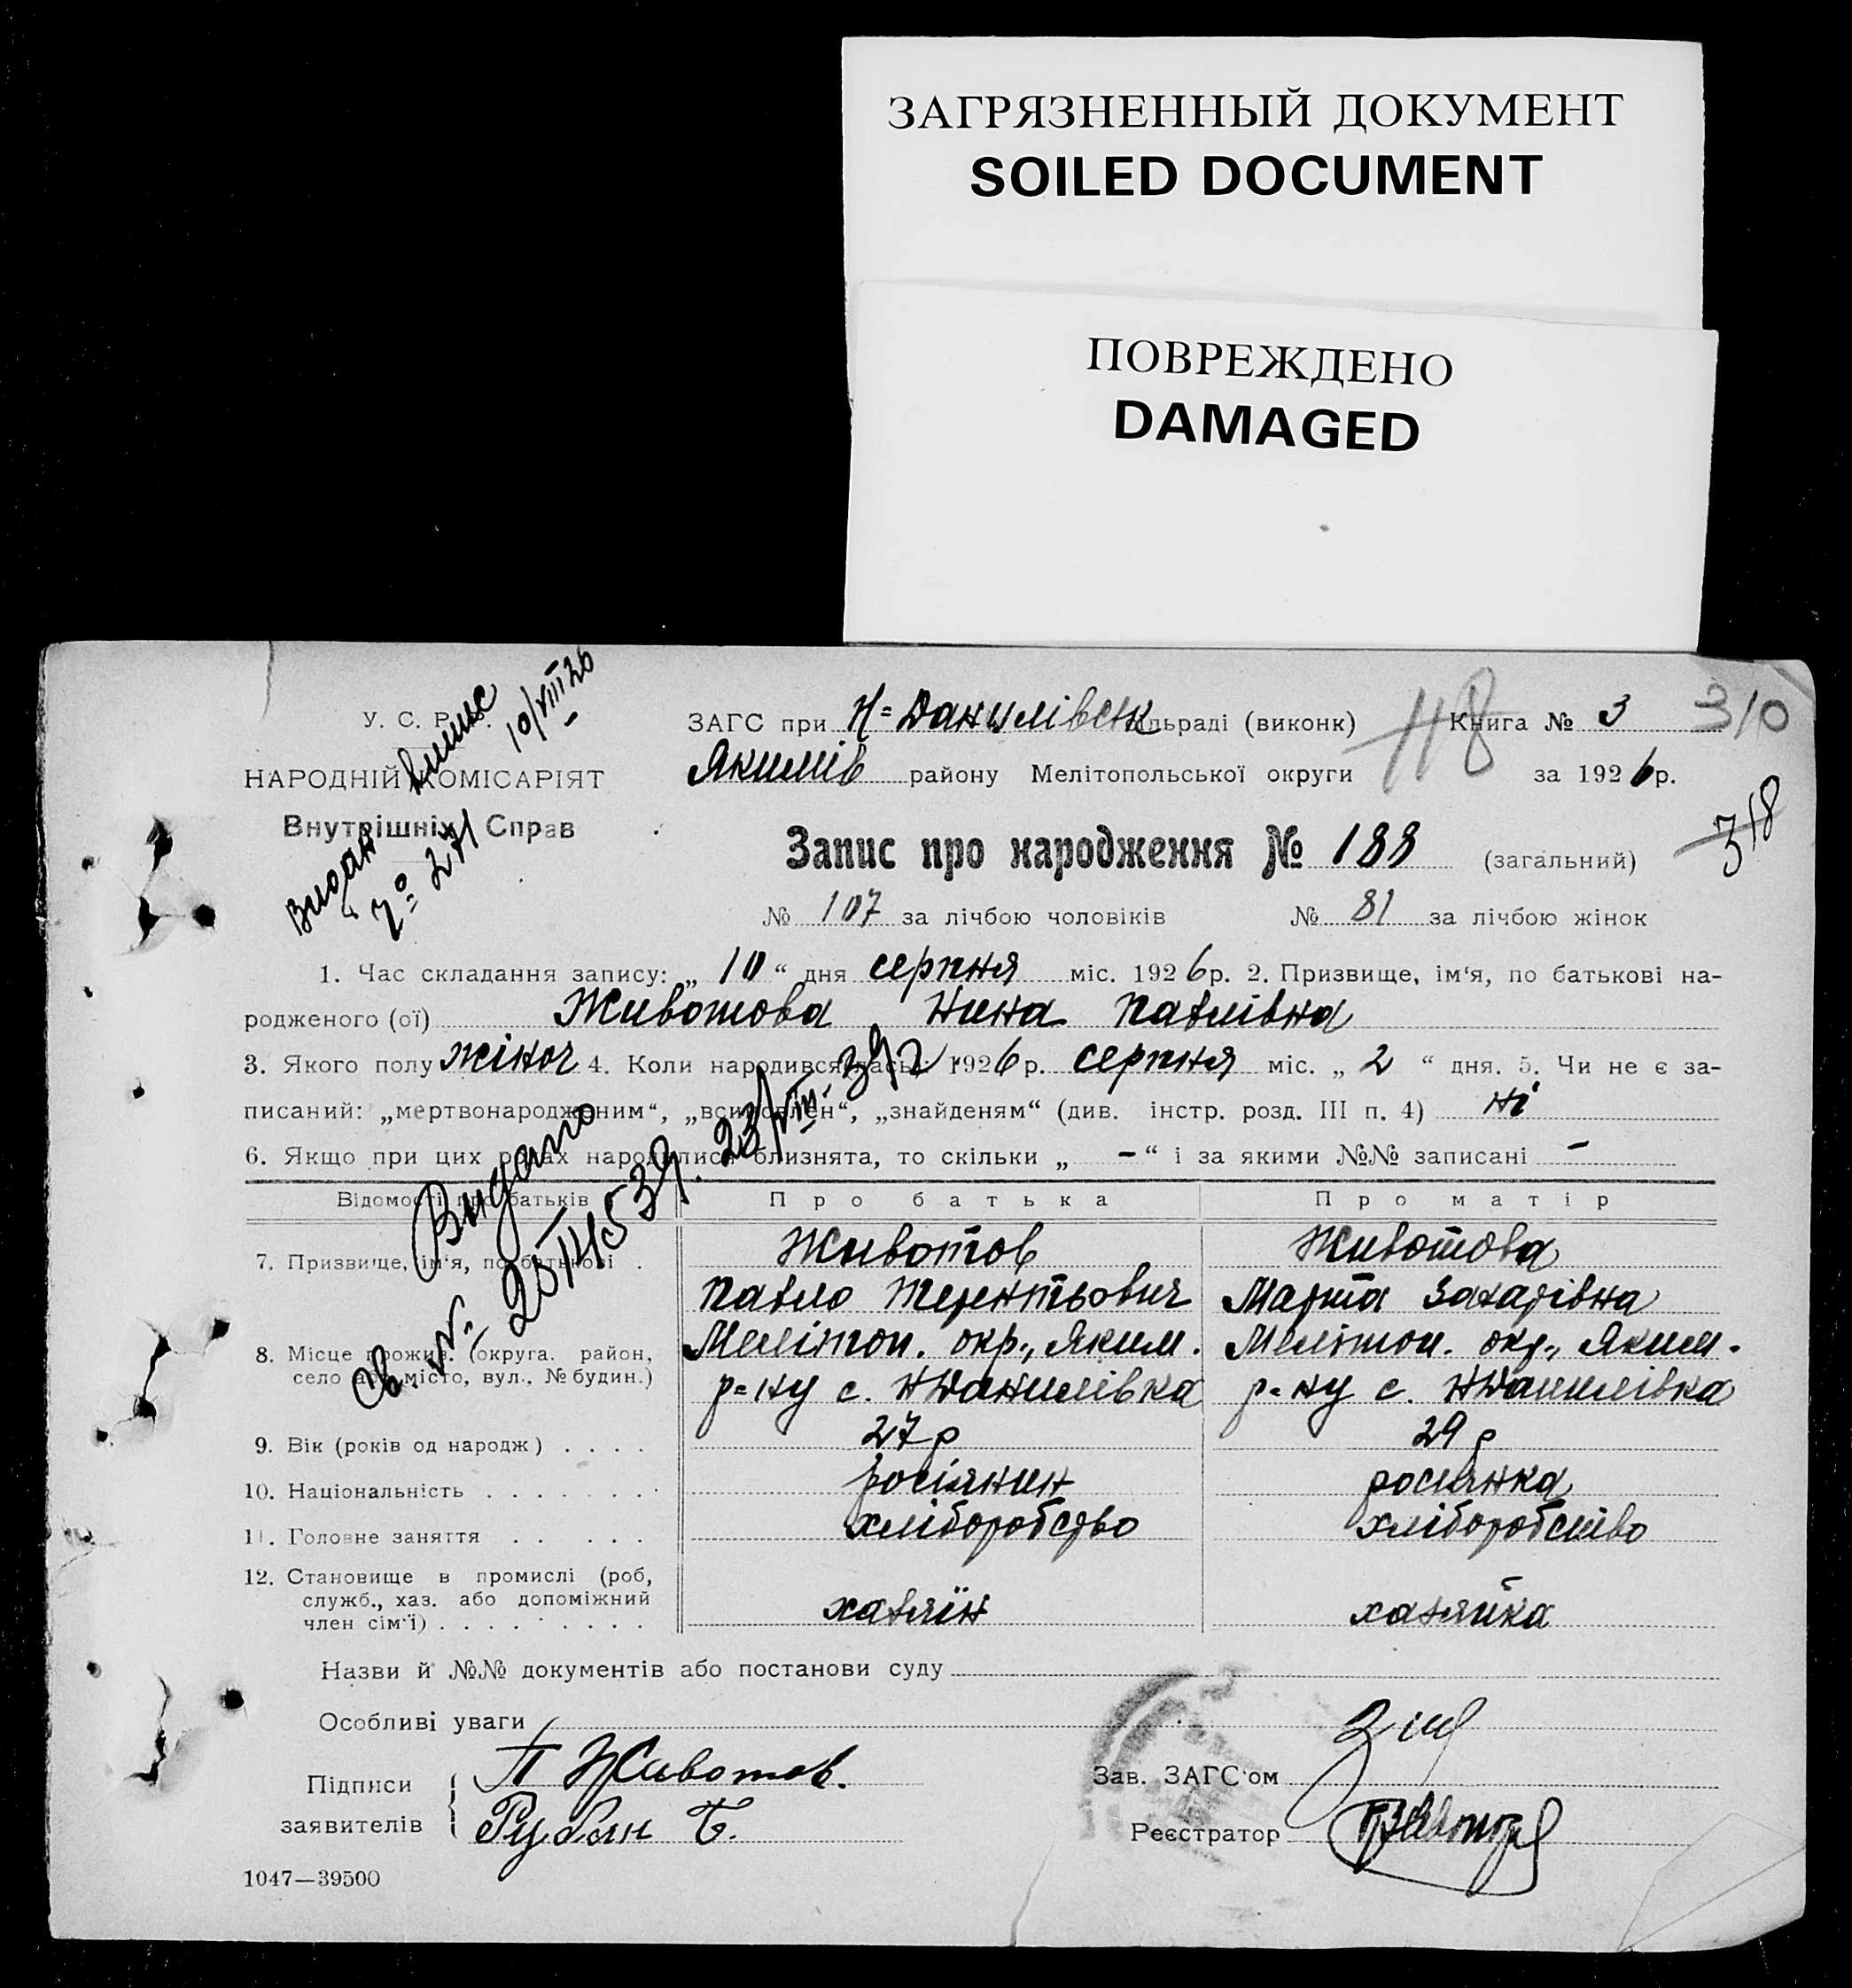 ЗАГРЯЗНЕННЫЙ ДОКУМЕНТ
SOILED DOCUMENT
ПОВРЕЖДЕНО
DAMAGED
У. С. Р. Р.
НАРОДНІЙ КОМІСАРІЯТ
Внутрішніх Справ
Видан випис
10/VIII 26
№ 271
ЗАГС при Н=Данилівськ сільраді (виконк) Книга № 3 310
118
Якимів району Мелітопольської округи за 1926р.
318
Запис про народження № 188 (загальний)
№ 107 за лічбою чоловіків № 81 за лічбою жінок
1. Час складання запису: „ 10 “ дня серпня міс. 1926р. 2. Призвище, ім‘я, по батькові на-
родженого (ої) Животова Нина Павлівна
3. Якого полу жіноч 4. Коли народився(лась): 1926р. серпня міс. „ 2 “ дня. 5. Чи не є за-
писаний: „мертвонародженим“, „всиновлен“, „знайденям“ (див. інстр. розд. III п. 4) ні
6. Якщо при цих родах народились близнята, то скільки „ – “ і за якими №№ записані –
Видано
23/VIII 39г
Відомості про батьків Про батька Про матір
7. Призвище, ім‘я, по батькові . Животов Животова
Павло Терентьович Марта Захарівна
8. Місце прожив. (округа. район, село або місто, вул., № будин.) Мелітоп. окр., Яким. Мелітоп. окр., Яким.
р=ну с. НДанилівка р=ну с. НДанилівка
9. Вік (років од народж) . . . . 27 р 29 р
10. Національність . . . . . . . . росіянин росіянка
11. Головне заняття . . . . . хліборобство хліборобство
12. Становище в промислі (роб, служб., хаз. або допоміжний член сім‘ї) . . . . . . . . . хазяїн хазяйка
Назви й №№ документів або постанови суду
Особливі уваги
Підписи заявителів П Животов.
Зав. ЗАГС‘ом
Реєстратор
1047—39500